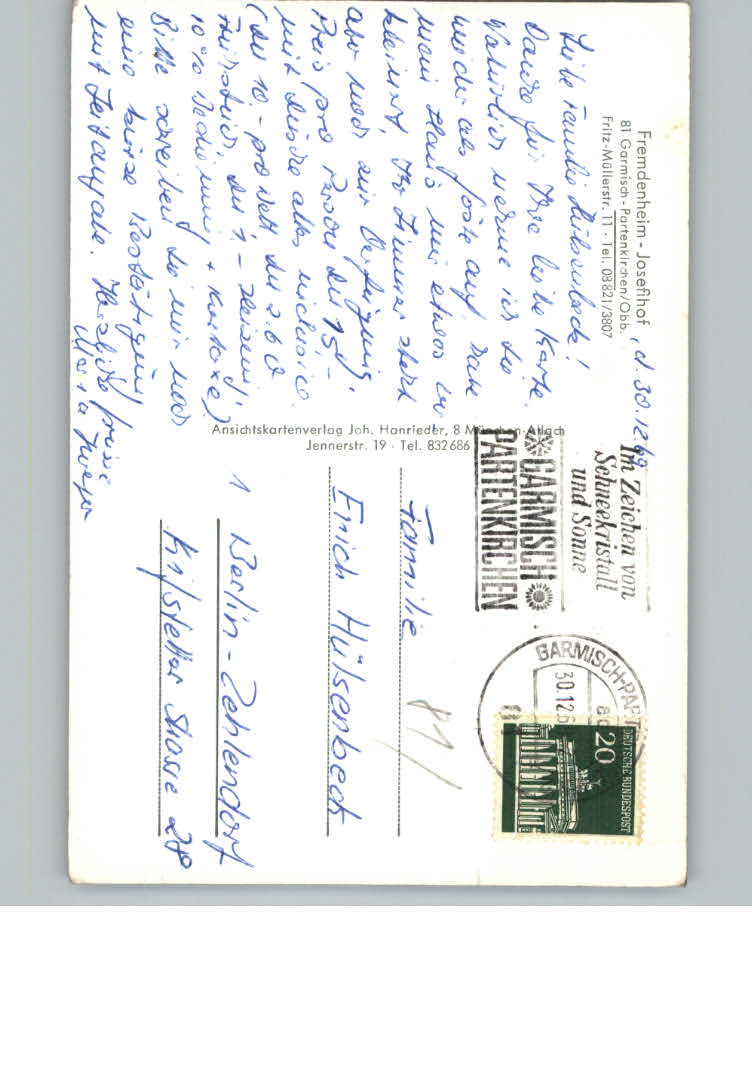 Fremdenheim - Josefihof
81 Garmisch - Partenkirchen/Obb.
Fritz-Müllerstr. 11 · Tel. 08821/3807
, d. 30.12.69
Liebe Familie Hülsenbeck!
Danke für Ihre liebe Karte.
Natürlich nehme ich Sie
wieder als Gäste auf. Habe
mein Haus nur etwas
Ihr Zimmer steht
aber noch zur Verfügung.
Preis pro Person DM 15.-
mit Dusche alles inclusive.
(DM 10.- pro Bett DM 2.60
Frühstück, DM 1.- Heizung,
10% Bedienung + Kurtaxe)
Bitte schreiben Sie mir noch
eine kurze Bestätigung
mit Zeitangabe. Herzliche Grüße
Maria
Ansichtskartenverlag Joh. Hanrieder, 8 München-Allach
Jennerstr. 19 · Tel. 832686
Im Zeichen von
Schneekristall
und Sonne
GARMISCH
PARTENKIRCHEN
GARMISCH-PART
30.12.6
DEUTSCHE BUNDESPOST
20
81
Familie
Erich Hülsenbeck
1 Berlin-Zehlendorf
Kilstetter Strasse 28